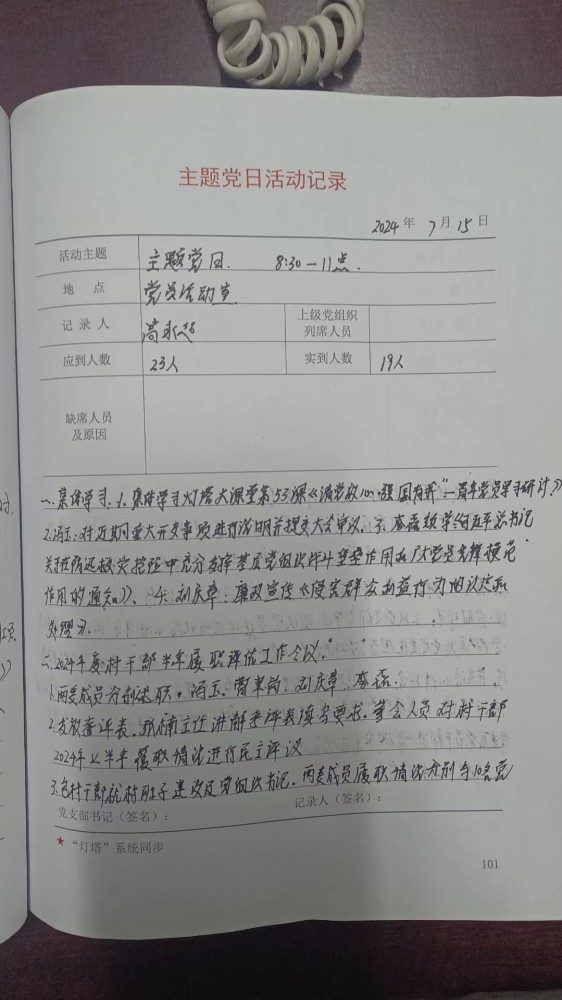 主题党日活动记录
2024 年 7 月 15 日
活动主题 主题党日. 8:30—11点.
地 点 党员活动室
记 录 人 高 上级党组织列席人员
应到人数 23人 实到人数 19人
缺席人员及原因
一. 集体学习. 1. 集体学习灯塔大课堂第53课《请党放心·强国有我”—青年党员学习研讨》
2.冯玉:对近期重大开支事项进行说明并提交大会审议. 3. 李磊领学习近平总书记
关于在防汛救灾抢险中充分发挥基层党组织战斗堡垒作用和广大党员先锋模范
作用的通知》、4. 刘庆草:廉政宣传《侵害群众利益行为的认定和
处理》.
二. 2024年度村干部半年履职评估工作会议.
1.两委成员分别述职. 冯玉. 刘庆草. 李磊.
2.发放测评表. 主任讲解考评表填写要求. 参会人员对村干部
2024年上半年履职情况进行民主评议
3.包村干部就村班子建设及党组织书记. 两委成员履职情况分别与10名党
党支部书记(签名): 记录人(签名):
★“灯塔”系统同步
101